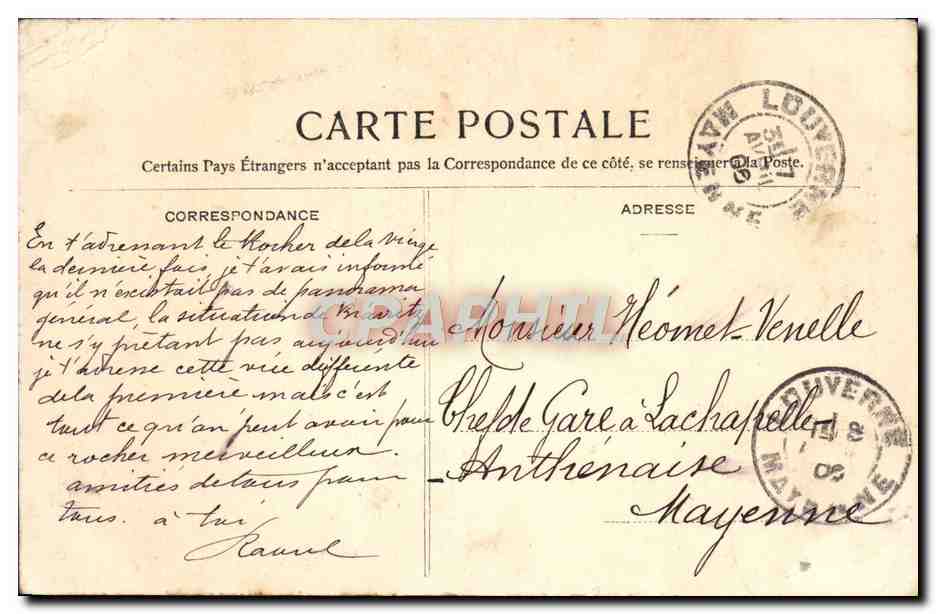 CARTE POSTALE
Certains Pays Étrangers n'acceptant pas la Correspondance de ce côté, se renseigner à la Poste.
CORRESPONDANCE
En t'adressant le Rocher de la Vierge
la dernière fois, je t'avais informé
qu'il n'existait pas de panorama
general, la situation de Biarritz
ne s'y prêtant pas aujourd'hui
je t'adresse cette vue différente
de la première mais c'est
tout ce qu'on peut avoir pour
ce rocher merveilleux.
amitiés de tous pour
tous. à toi
Raoul
ADRESSE
Monsieur Néomet-Venelle
Chef de Gare à Lachapelle-
-Anthenaise
Mayenne
LOUVERNE
MAYENNE
AVRIL
LOUVERNE
MAYENNE
CPAPHIL